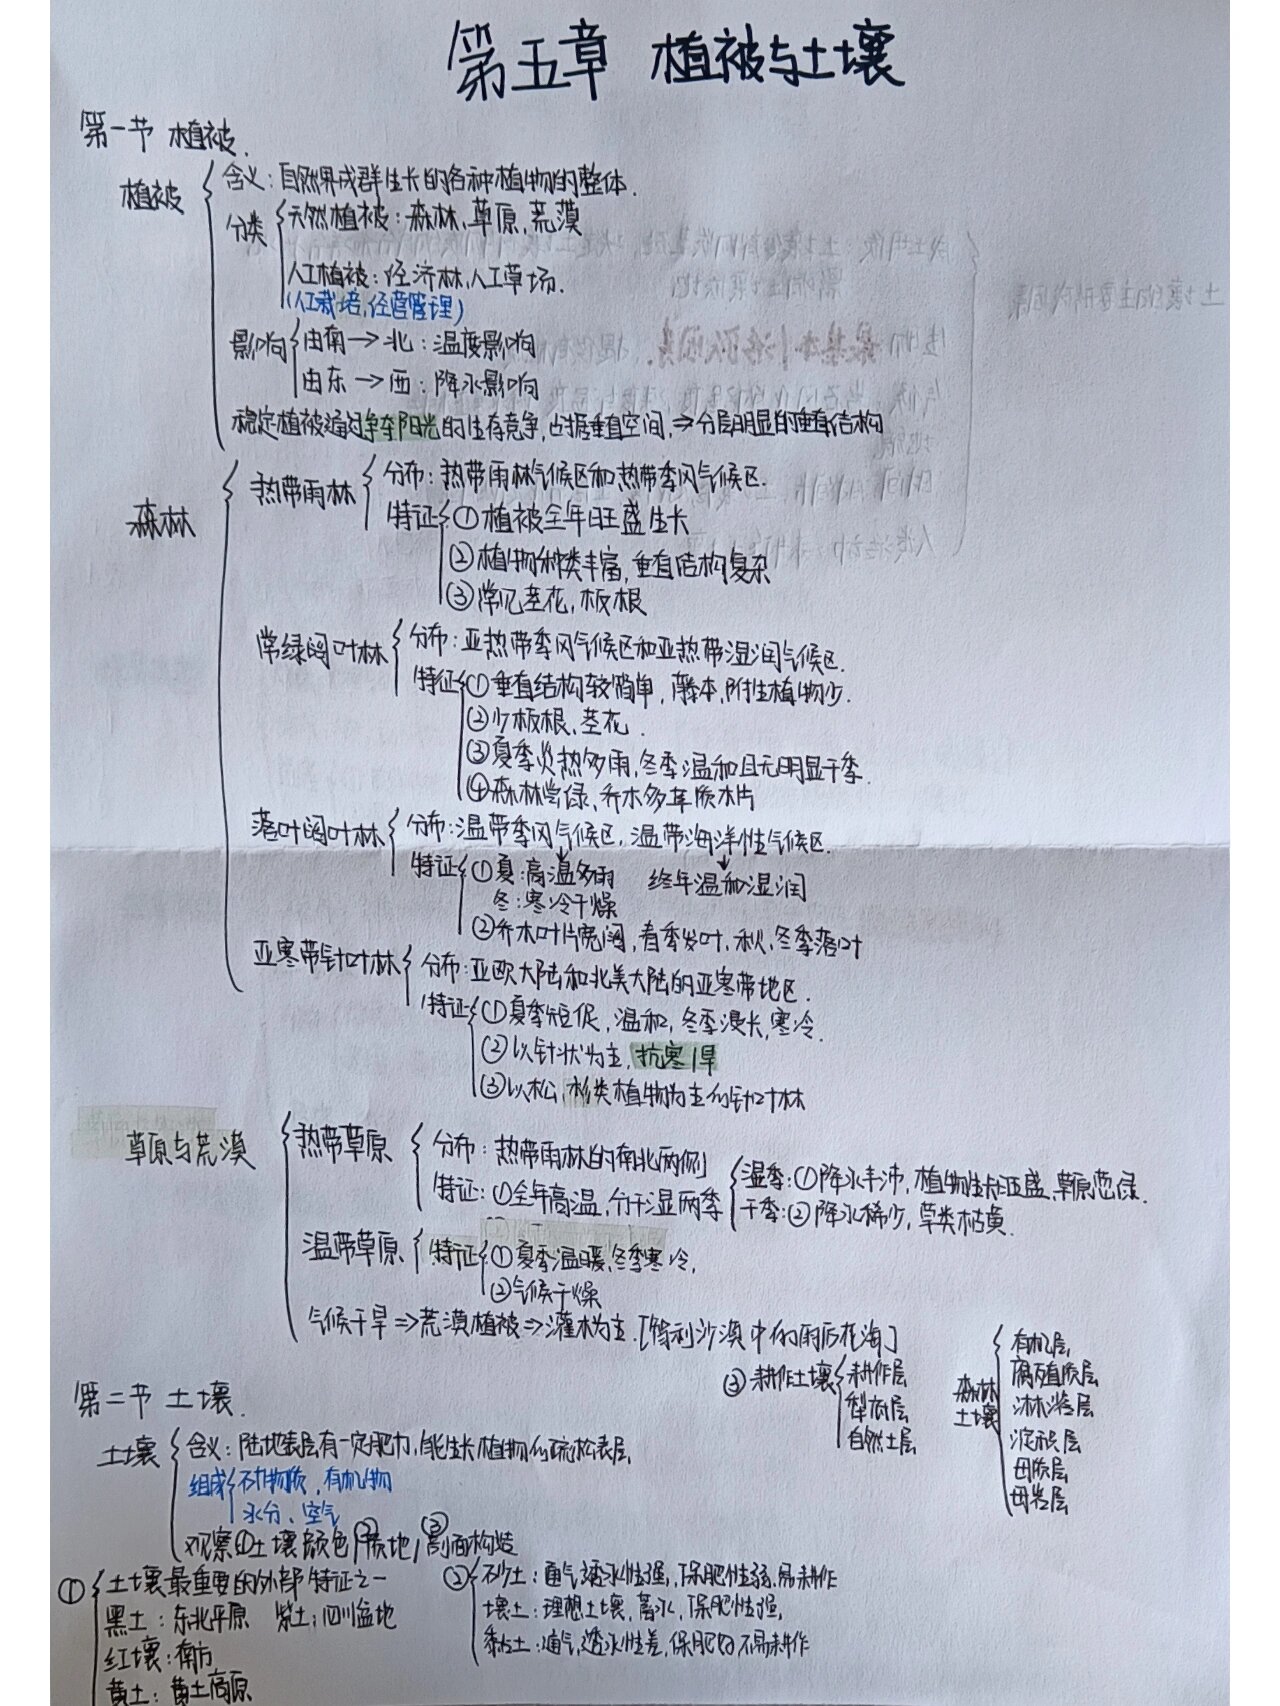 第五章 植被与土壤
第一节 植被.
植被
含义:自然界成群生长的各种植物的整体.
分类
天然植被:森林,草原,荒漠
人工植被:经济林,人工草场.
(人工栽培,经营管理)
影响
由南→北:温度影响
由东→西:降水影响
稳定植被通过争夺阳光的生存竞争,占据垂直空间,⇒分层明显的垂直结构
森林
热带雨林
分布:热带雨林气候区和热带季风气候区.
特征
①植被全年旺盛生长
②植物种类丰富,垂直结构复杂
③常见茎花,板根
常绿阔叶林
分布:亚热带季风气候区和亚热带湿润气候区.
特征
①垂直结构较简单,藤本,附生植物少.
②少板根、茎花.
③夏季炎热多雨,冬季温和且无明显干季.
④森林常绿、乔木多革质木片
落叶阔叶林
分布:温带季风气候区,温带海洋性气候区.
特征
①夏:高温多雨 终年温和湿润
冬:寒冷干燥
②乔木叶片宽阔,春季发叶,秋,冬季落叶
亚寒带针叶林
分布:亚欧大陆和北美大陆的亚寒带地区.
特征
①夏季短促,温和,冬季漫长,寒冷.
②以针状为主,抗寒旱
③以松,杉类植物为主的针叶林
草原与荒漠
热带草原
分布:热带雨林的南北两侧
特征:①全年高温,分干湿两季
湿季:①降水丰沛,植物生长旺盛,草原葱绿.
干季:②降水稀少,草类枯黄.
温带草原
特征
①夏季温暖,冬季寒冷,
②气候干燥
气候干旱⇒荒漠植被⇒灌木为主.[智利沙漠中的雨后花海]
第二节 土壤.
土壤
含义:陆地表层有一定肥力,能生长植物的疏松表层,
组成
矿物质,有机物
水分、空气
观察①土壤颜色,②质地,③剖面构造
①
土壤最重要的外部特征之一
黑土:东北平原 紫土:四川盆地
红壤:南方
黄土:黄土高原
②
砂土:通气透水性强,保肥性弱,易耕作
壤土:理想土壤,蓄水,保肥性强,
黏土:通气,透水性差,保肥好,不易耕作
③耕作土壤
耕作层
犁底层
自然土层
森林土壤
有机层,
腐殖质层
淋溶层
淀积层
母质层
母岩层